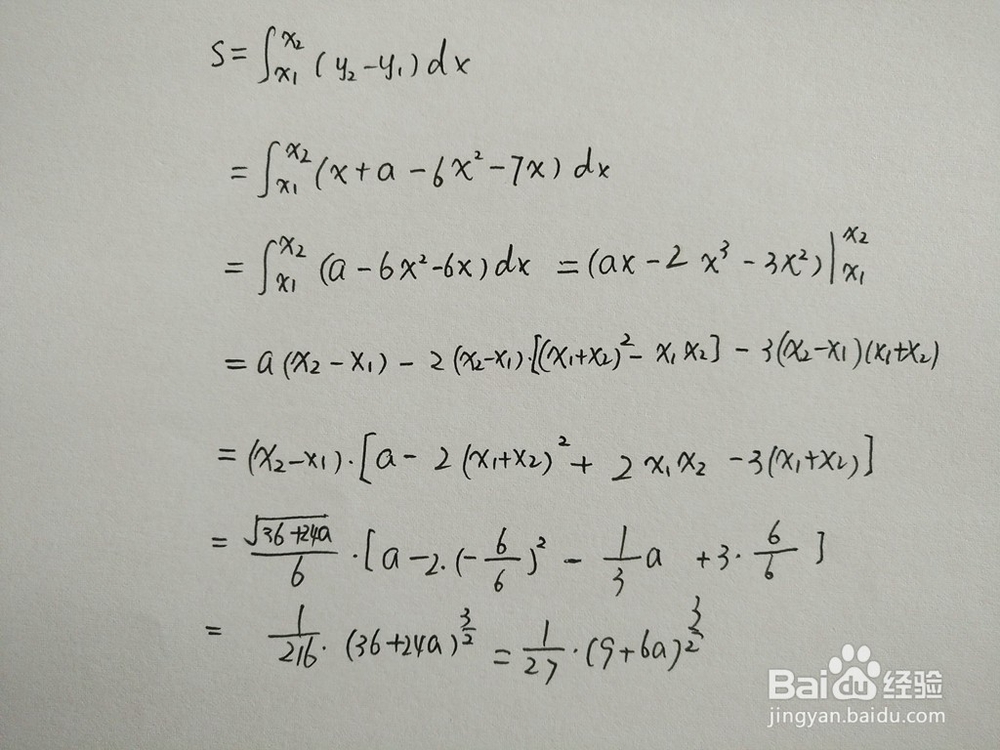 S=∫_{x₁}^{x₂}(y₂-y₁)dx
=∫_{x₁}^{x₂}(x+a-6x²-7x)dx
=∫_{x₁}^{x₂}(a-6x²-6x)dx=(ax-2x³-3x²)|_{x₁}^{x₂}
=a(x₂-x₁)-2(x₂-x₁)·[(x₁+x₂)²-x₁x₂]-3(x₂-x₁)(x₁+x₂)
=(x₂-x₁)·[a-2(x₁+x₂)²+2x₁x₂-3(x₁+x₂)]
=√(36+24a)/6·[a-2·(-6/6)²-1/3a+3·6/6]
=1/216·(36+24a)^{3/2}=1/27·(9+6a)^{3/2}
Baidu经验
jingyan.baidu.com